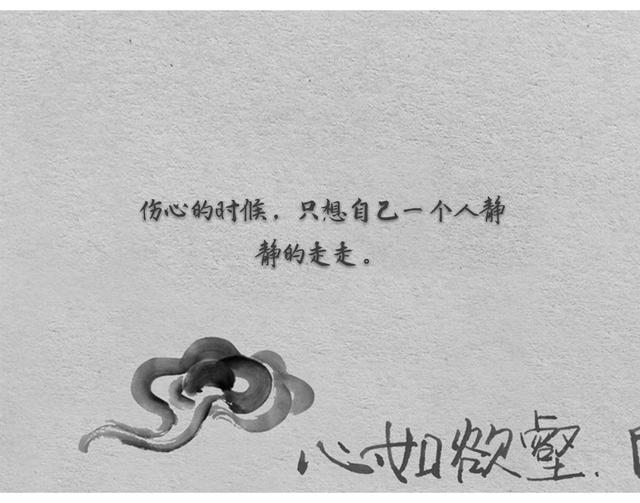 伤心的时候，只想自己一个人静
静的走走。
心如欲壑.